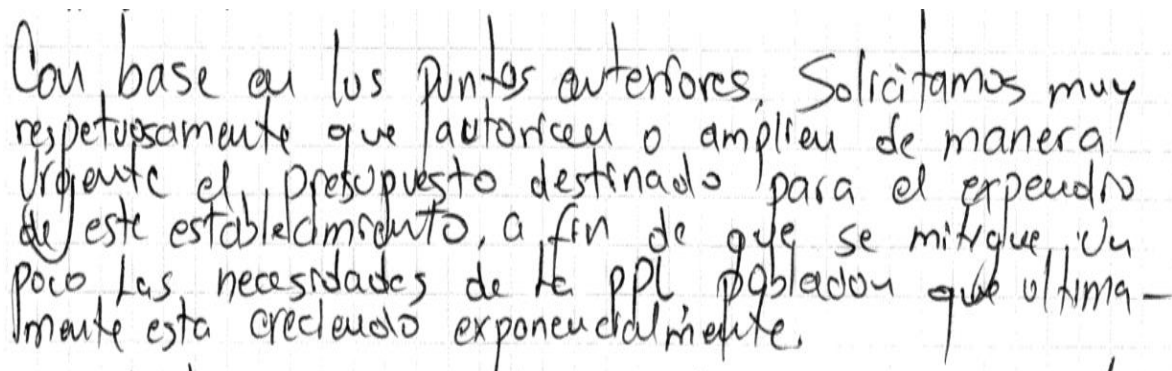 Con base en los puntos anteriores, Solicitamos muy
respetuosamente que autoricen o amplien de manera
Urgente el presupuesto destinado para el expendio
de este establecimiento, a fin de que se mitigue un
poco Las necesidades de la PPL poblacion que ultima-
mente esta creciendo exponencialmente.